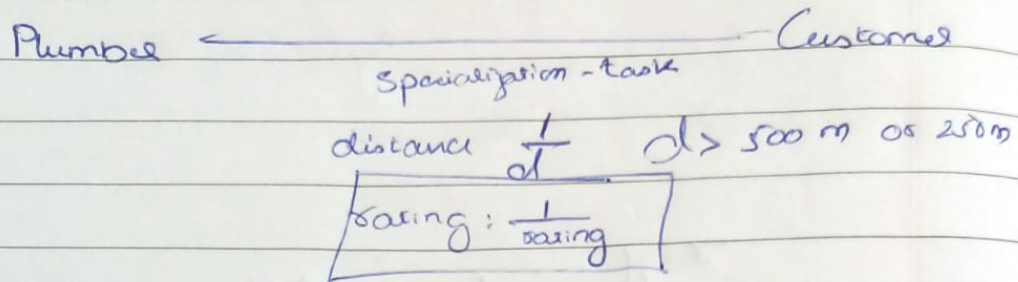 Plumber ← Customer
specialization - task
distance 1/d d> 500 m or 250m
rating : 1/rating